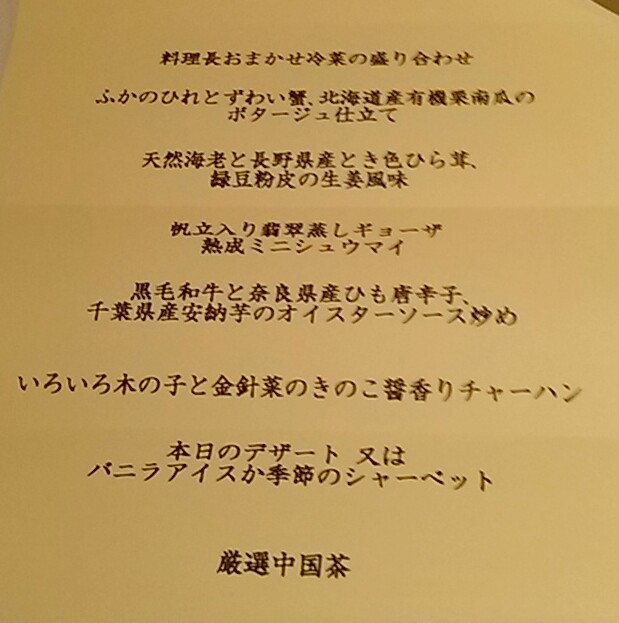 料理長おまかせ冷菜の盛り合わせ
ふかのひれとずわい蟹、北海道産有機栗南瓜の
ポタージュ仕立て
天然海老と長野県産とき色ひら茸、
緑豆粉皮の生姜風味
帆立入り翡翠蒸しギョーザ
熟成ミニシュウマイ
黒毛和牛と奈良県産ひも唐辛子、
千葉県産安納芋のオイスターソース炒め
いろいろ木の子と金針菜のきのこ醤香りチャーハン
本日のデザート 又は
バニラアイスか季節のシャーベット
厳選中国茶